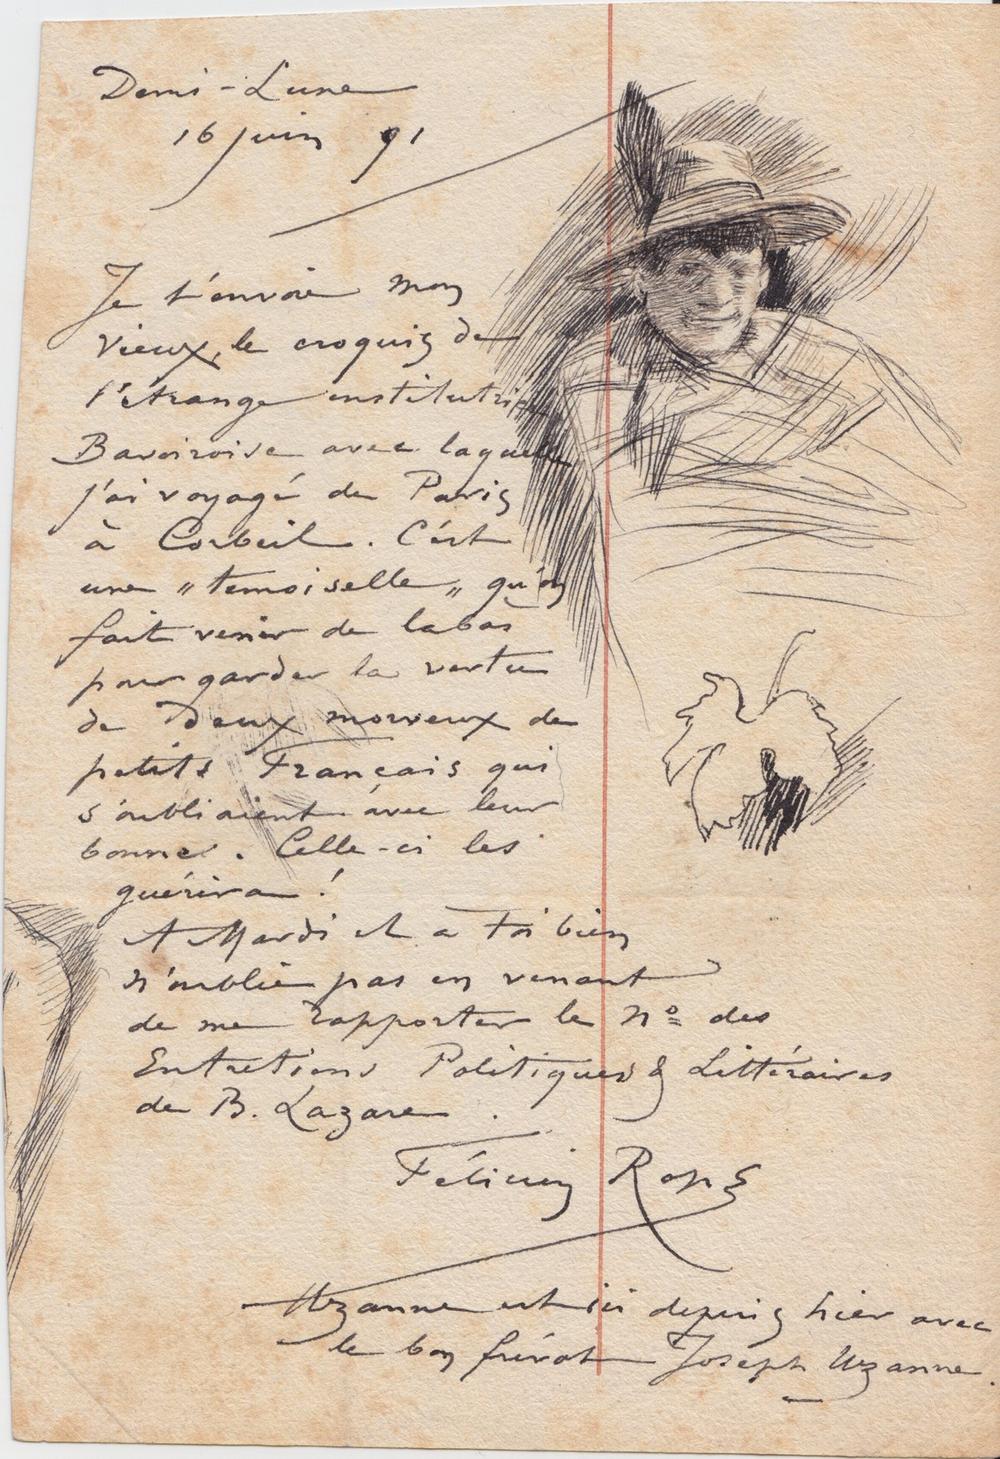 Demi-Lune
16 juin 91
Je t'envoie mon
vieux, le croquis de
l'étrange institutri
Bavaroise avec laquelle
j'ai voyagé de Paris
à Corbeil. C'est
une „ temoiselle „ qu'on
fait venir de labas
pour garder la vertu
de deux morveux de
petits Français qui
s'oubliaient avec leur
bonne. Celle-ci les
guérira !
A Mardi et à Toi bien
n'oublie pas en venant
de me rapporter le No des
Entretiens Politiques & Littéraires
de B. Lazare .
Félicien Rops
Uzanne est ici depuis hier avec
le bon frérot Joseph Uzanne.